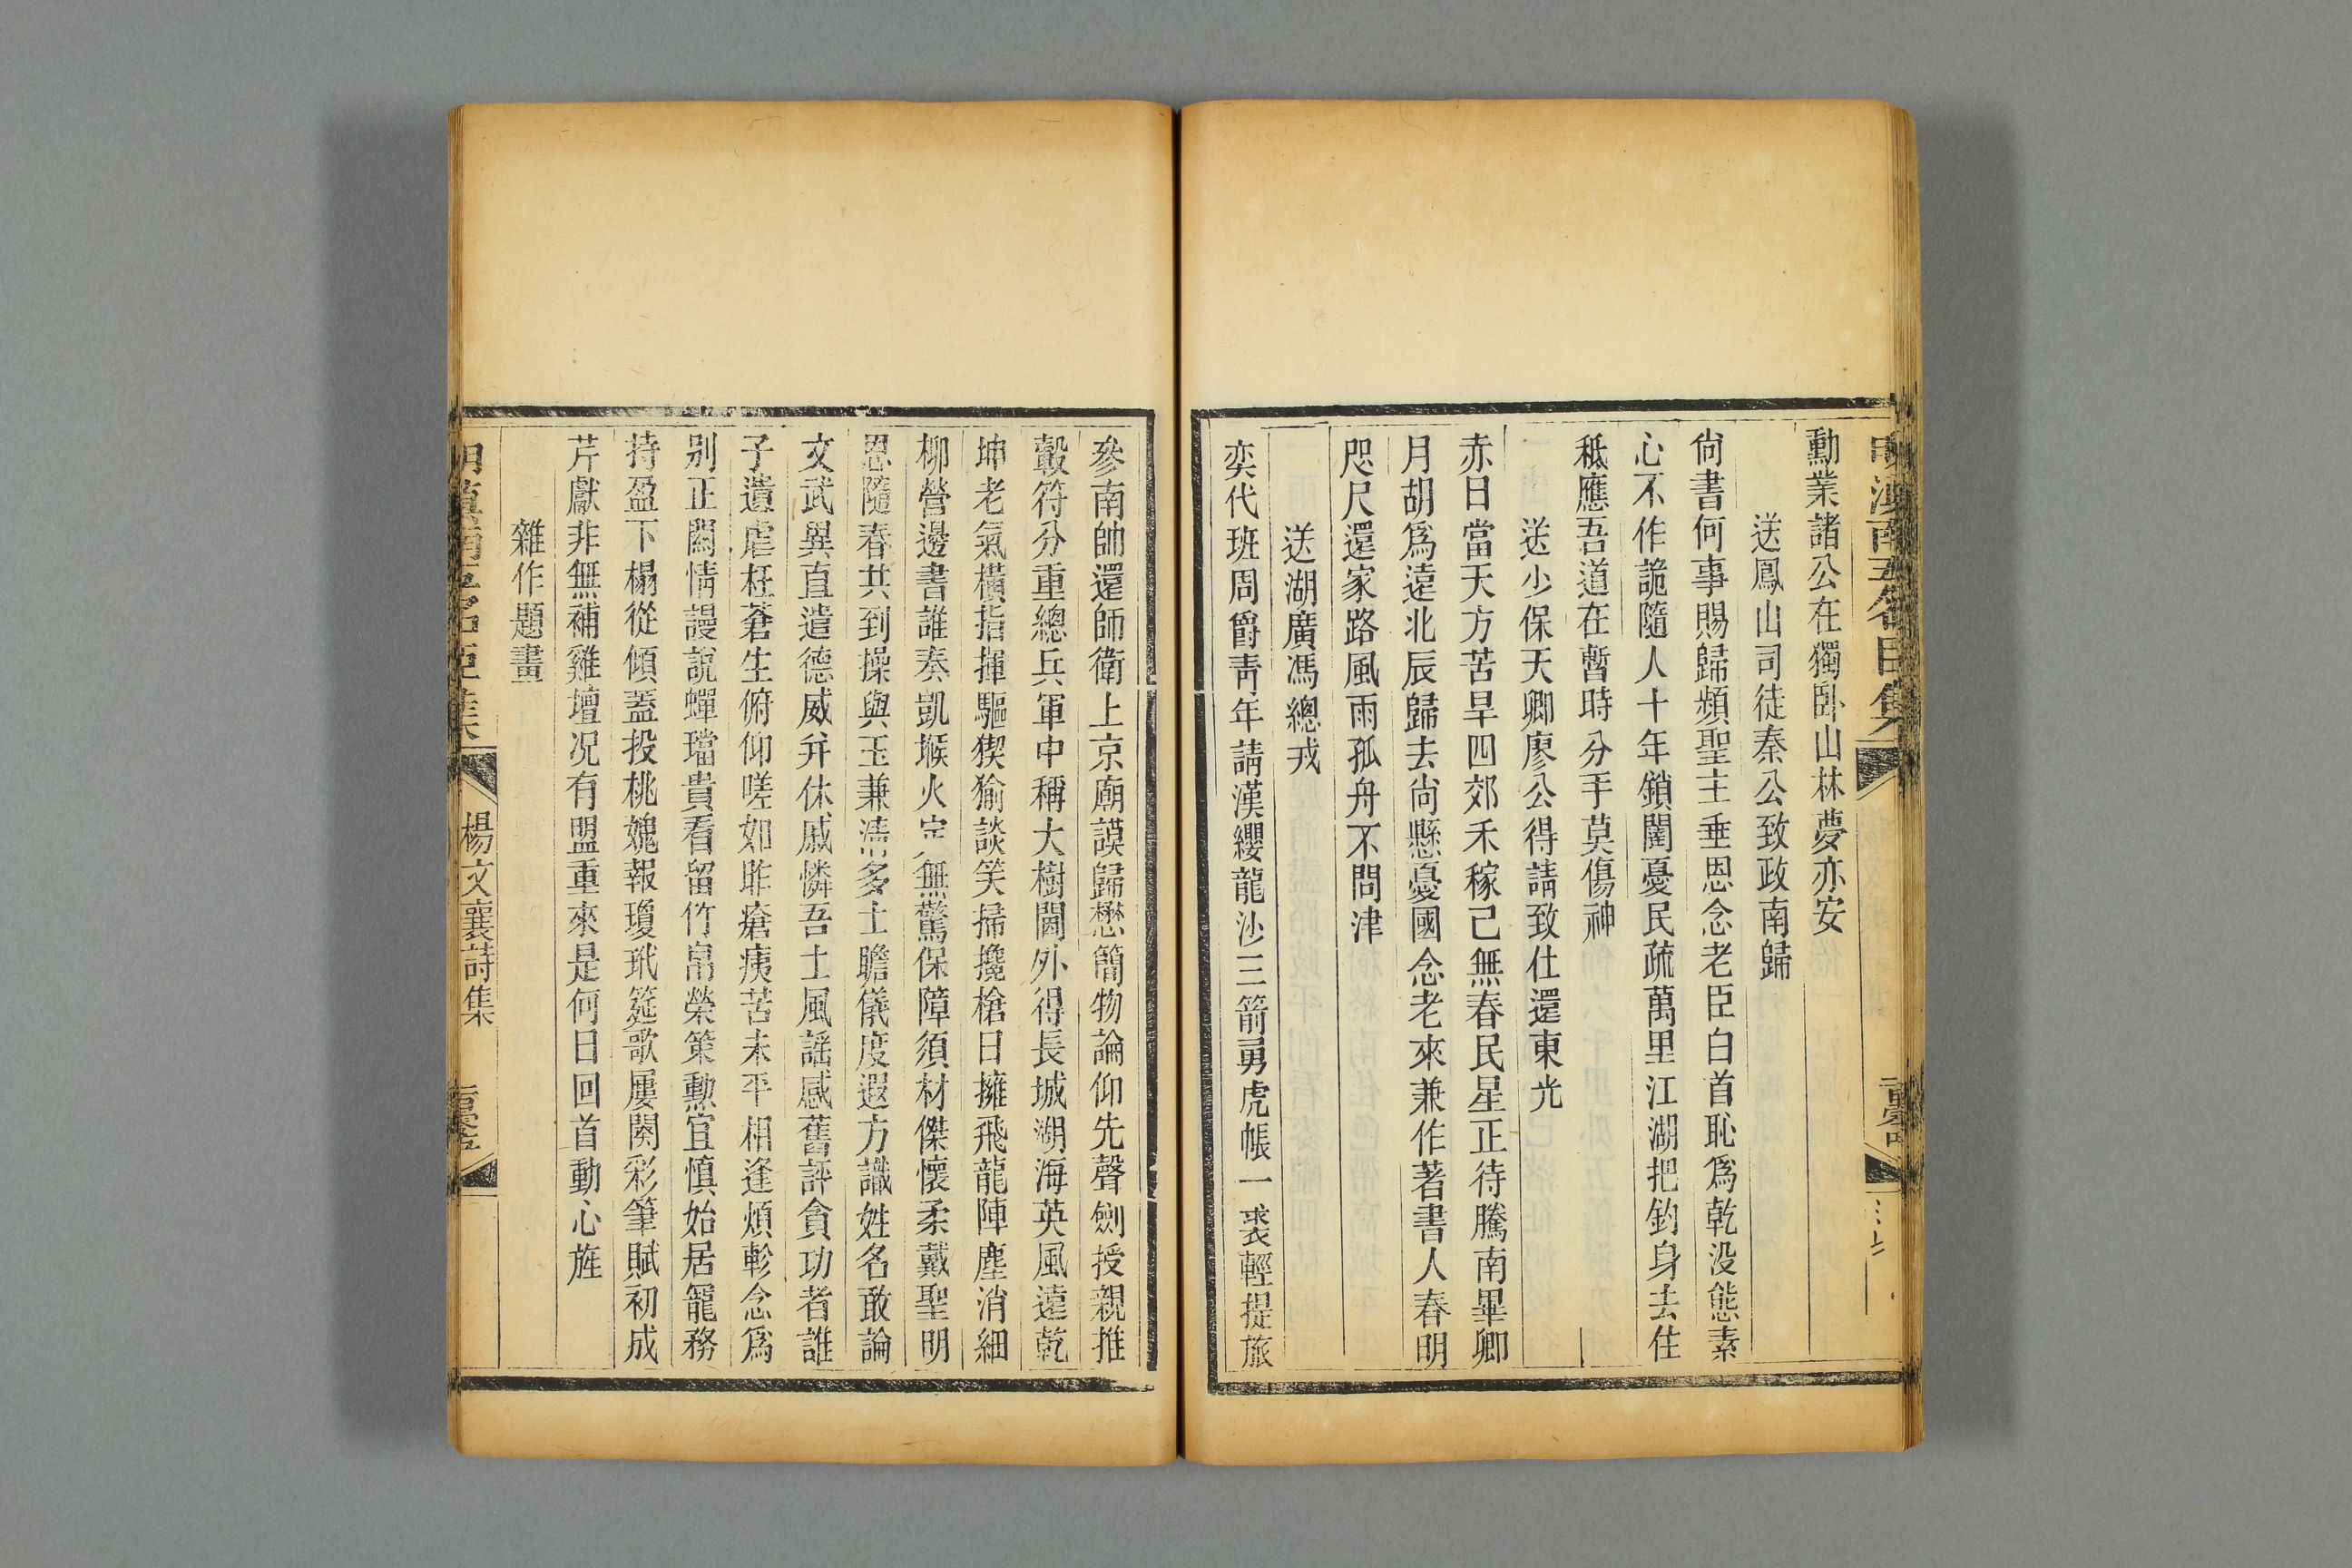 勳業諸公在獨臥山林夢亦安
送鳳山司徒秦公致政南歸
尙書何事賜歸頻聖主垂恩念老臣白首恥爲乾没態素
心不作詭隨人十年鎖闥憂民疏萬里江湖把釣身去住
秪應吾道在暫時分手莫傷神
送少保天卿廖公得請致仕還東光
赤日當天方苦旱四郊禾稼已無春民星正待騰南畢卿
月胡爲遠北辰歸去尙懸憂國念老來兼作著書人春明
咫尺還家路風雨孤舟不問津
送湖廣馮總戎
奕代班周爵靑年請漢纓龍沙三箭勇虎帳一裘輕提旅
參南帥還師衛上京廟謨歸懋簡物論仰先聲劍授親推
轂符分重總兵軍中稱大樹閫外得長城湖海英風遠乾
坤老氣橫指揮驅猰㺄談笑掃攙槍日擁飛龍陣塵消細
柳營邊書誰奏凱堠火定無驚保障須材傑懷柔戴聖明
恩隨春共到操與玉兼淸多士瞻儀度遐方識姓名敢論
文武異直遣德威幷休戚憐吾土風謡感舊評貪功者誰
子遺虐枉蒼生俯仰嗟如昨瘡痍苦未平相逢煩軫念爲
别正關情謾說蟬璫貴看留竹帛榮策勳宜慎始居寵務
持盈下榻從傾蓋投桃媿報瓊玳筵歌屢闋彩筆賦初成
芹獻非無補雞壇况有盟重來是何日回首動心旌
雜作題畫
楊文襄詩集